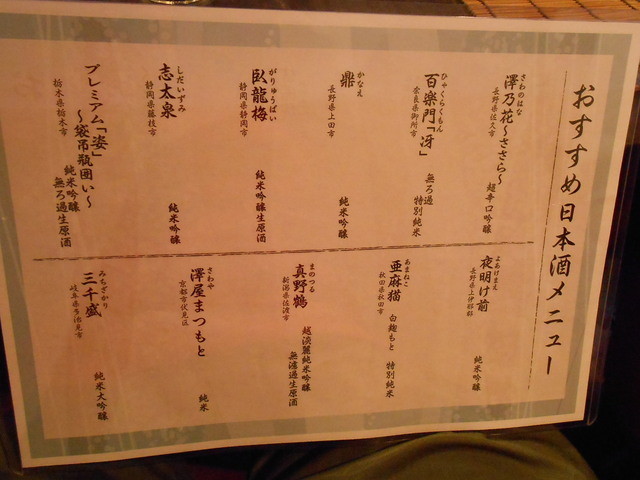 おすすめ日本酒メニュー
さわのはな
澤乃花～ささら～
長野県佐久市
超辛口吟醸
ひゃくらくもん
百楽門「冴」
奈良県御所市
無ろ過
特別純米
かなえ
鼎
長野県上田市
純米吟醸
がりゅうばい
臥龍梅
静岡県静岡市
純米吟醸生原酒
しだいずみ
志太泉
静岡県藤枝市
純米吟醸
プレミアム「姿」
～袋吊瓶囲い～
栃木県栃木市
純米吟醸
無ろ過生原酒
よあけまえ
夜明け前
長野県上伊那郡
純米吟醸
あまねこ
亜麻猫
秋田県秋田市
白麹もと
特別純米
まのつる
真野鶴
新潟県佐渡市
越淡麗純米吟醸
無濾過生原酒
さわや
澤屋まつもと
京都市伏見区
純米
みちざかり
三千盛
岐阜県多治見市
純米大吟醸